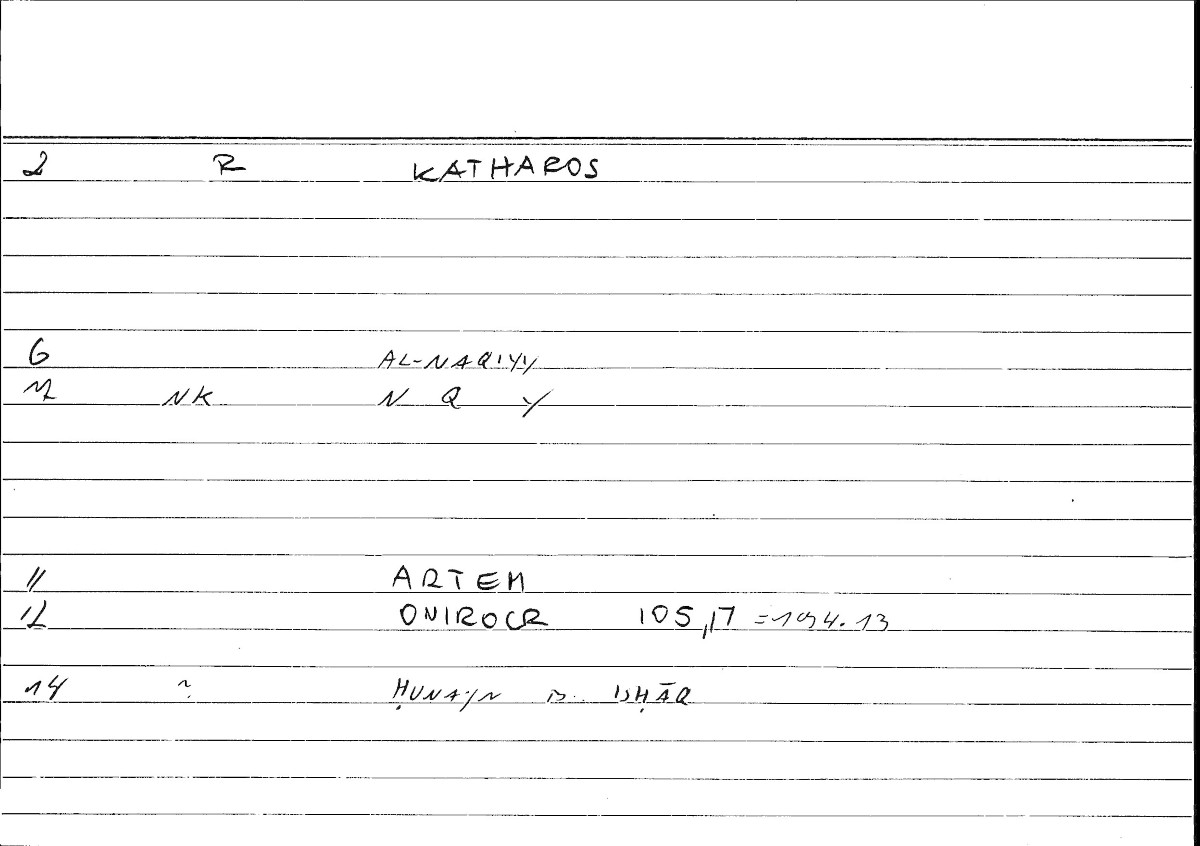 2 R KATHAROS
6 AL-NAQIYY
7 NK N Q Y
11 ARTEM
12 ONIROCR 105,17 = 194.13
14 ~ ḤUNAYN B. ISḤĀQ